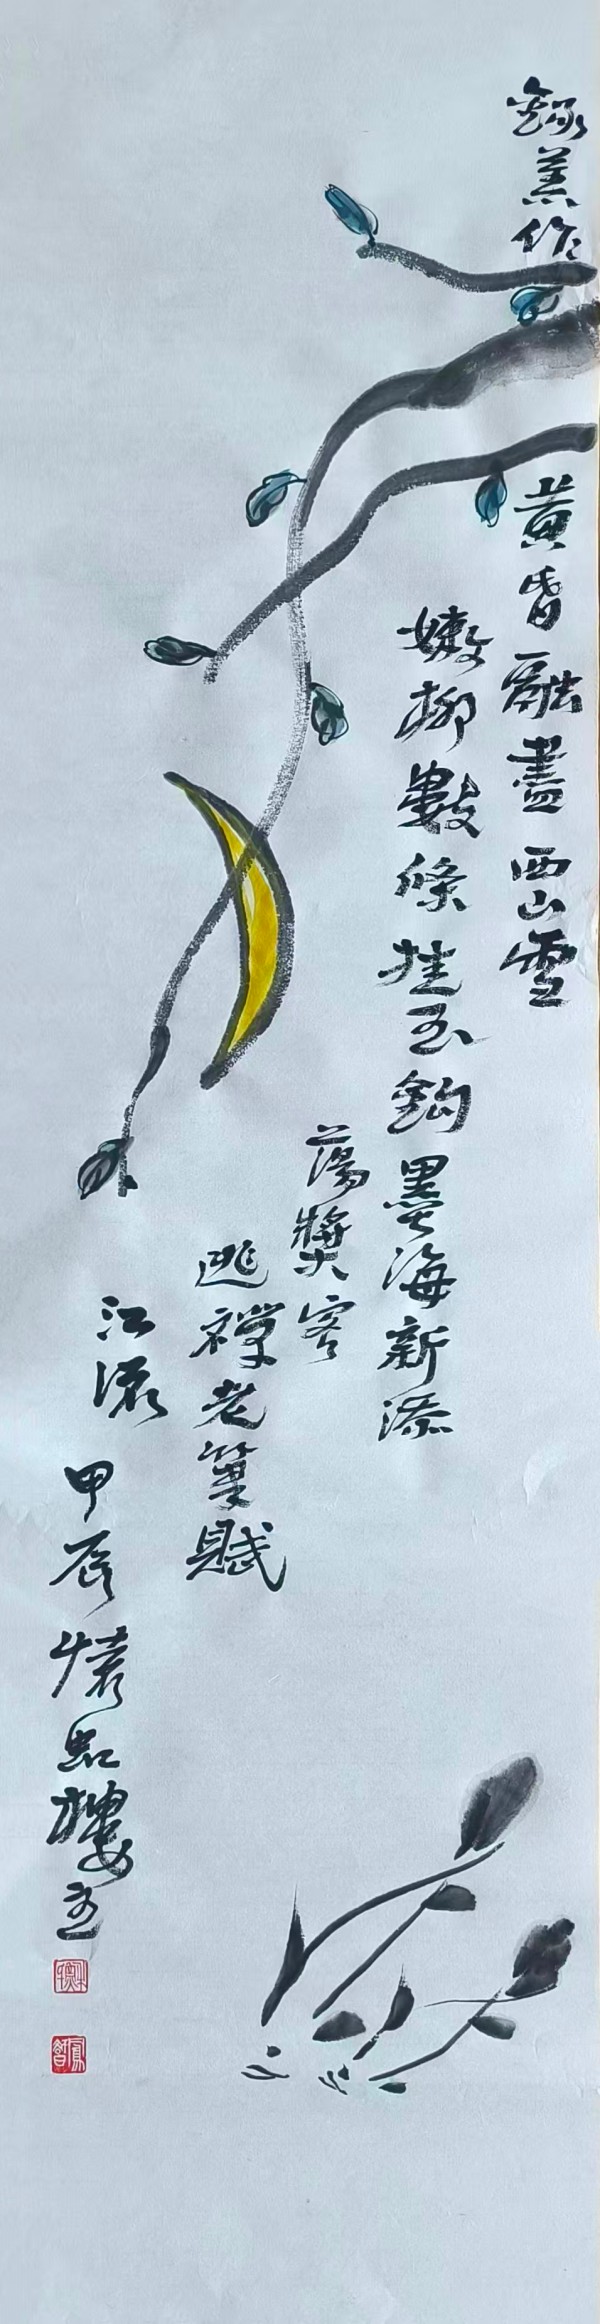 錄作
黄昏融盡西山雪
嫩柳數條挂玉鈎墨海新添
蕩槳客
逃禪老筆賦
江流
甲辰虹樓主